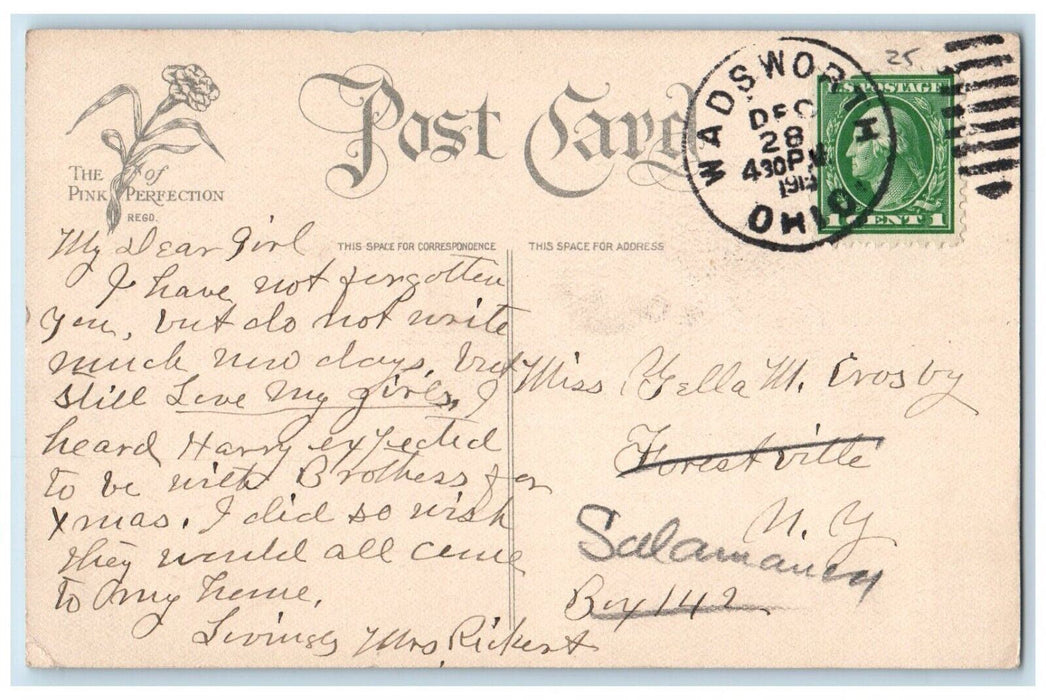 25
WADSWORTH
DEC
28
430PM
OHIO
U.S. POSTAGE
1 CENT 1
Post Card
THE of
PINK PERFECTION
REGD.
THIS SPACE FOR CORRESPONDENCE
THIS SPACE FOR ADDRESS
My Dear Girl
I have not forgotten
you, but do not write
much now days, but
still Love my girls, I
heard Harry expected
to be with Brothers for
Xmas. I did so wish
they would all come
to my home.
Lovingly Mrs Rickert
Miss Zella M. Crosby
Forestville
N. Y
Salamanca
Box 142